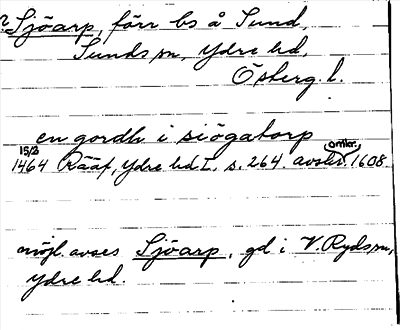 ? Sjöarp, förr bs å Sund,
Sunds sn, Ydre hd,
Österg. l.
en gordh i siögatorp
15/3 omkr.
1464 Rääf, Ydre hd I, s. 264. avskr. 1608.
möjl. avses Sjöarp, gd i V. Ryds sn,
Ydre hd.